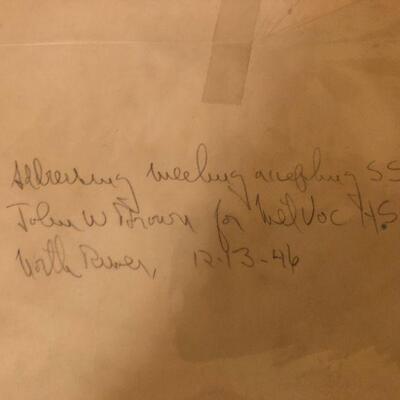 Addressing meeting accepting SS
John W Brown for MetVoc HS.
North River, 12-13-46